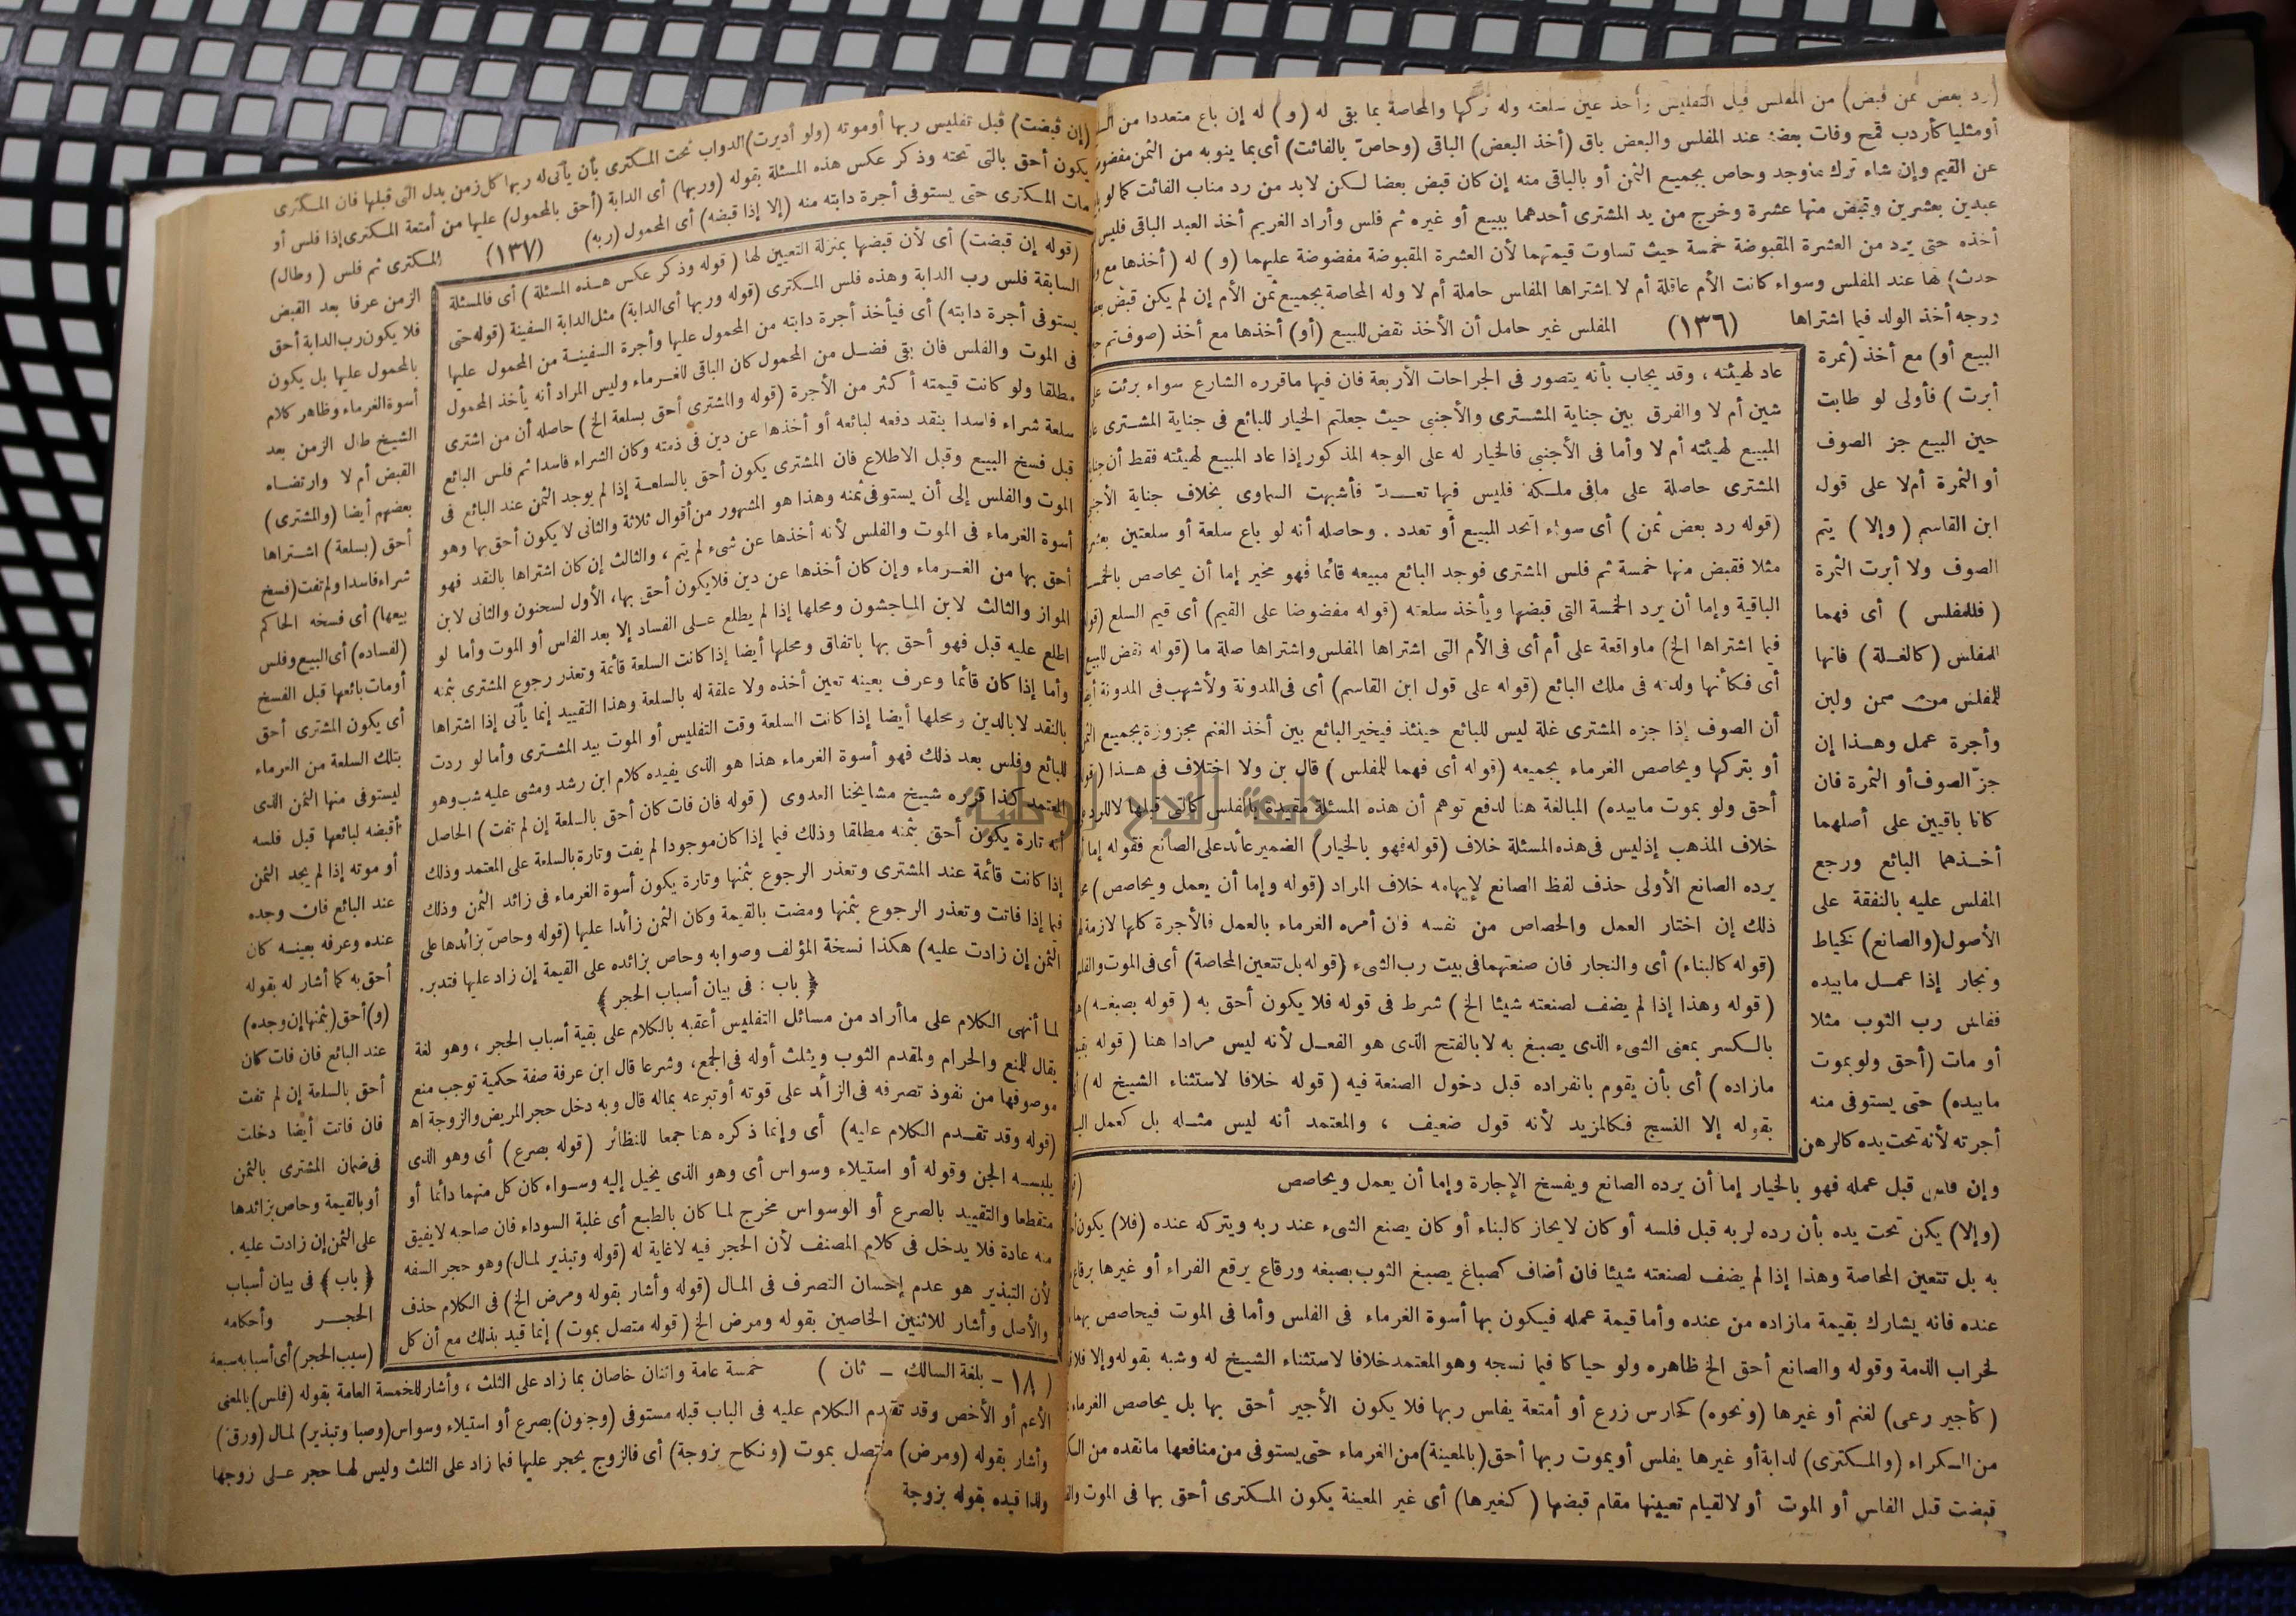 (رد بعض ثمن قبض) من المفلس قبل التفليس وأخذ عين سلعته وله تركها والمحاصة بما بقى له (و) له إن باع متعددا من
أو مثليا كأردب قمح وفات بعضه عند المفلس والبعض باق (أخذ البعض) الباقى (وحاصّ بالفائت) أى بما ينوبه من الثمن مفضوضا
عن القيم وإن شاء ترك ماوجد وحاص بجميع الثمن أو بالباقى منه إن كان قبض بعضا لكن لابد من رد مناب الفائت كما لو
عبدين بعشرين وقبض منها عشرة وخرج من يد المشترى أحدهما ببيع أو غيره ثم فلس وأراد الغريم أخذ العبد الباقى فليس
أخذه حتى يرد من العشرة المقبوضة خمسة حيث تساوت قيمتهما لأن العشرة المقبوضة مفضوضة عليهما (و) له (أخذها مع
حدث) لها عند المفلس وسواء كانت الأم عاقلة أم لا اشتراها المفلس حاملة أم لا وله المحاصة بجميع ثمن الأم إن لم يكن قبض
ووجه أخذ الولد فيما اشتراها (١٣٦) المفلس غير حامل أن الأخذ نقض للبيع (أو) أخذها مع أخذ (صوف تم
البيع أو) مع أخذ (ثمرة
أبرت) فأولى لو طابت
حين البيع جز الصوف
أو الثمرة أم لا على قول
ابن القاسم (وإلا) يتم
الصوف ولا أبرت الثمرة
(فللمفلس) أى فهما
للمفلس (كالغلة) فانها
للمفلس من سمن ولبن
وأجرة عمل وهذا إن
جزّ الصوف أو الثمرة فان
كانا باقيين على أصلهما
أخذهما البائع ورجع
المفلس عليه بالنفقة على
الأصول (والصانع) كخياط
ونجار إذا عمل مابيده
ففلس رب الثوب مثلا
أو مات (أحق ولو بموت
مابيده) حتى يستوفى منه
أجرته لأنه تحت يده كالرهن
عاد لهيئته ، وقد يجاب بأنه يتصور فى الجراحات الأربعة فان فيها ماقرره الشارع سواء برئت
شين أم لا والفرق بين جناية المشترى والأجنبى حيث جعلتم الخيار للبائع فى جناية المشترى
المبيع لهيئته أم لا وأما فى الأجنبى فالخيار له على الوجه المذكور إذا عاد المبيع لهيئته فقط أن
المشترى حاصلة على مافى ملكه فليس فيها تعدّ فأشبهت السماوى بخلاف جناية
(قوله رد بعض ثمن) أى سواء اتحد المبيع أو تعدد . وحاصله أنه لو باع سلعة أو سلعتين
مثلا فقبض منها خمسة ثم فلس المشترى فوجد البائع مبيعه قائما فهو مخير إما أن يحاصص
الباقية وإما أن يرد الخمسة التى قبضها ويأخذ سلعته (قوله مفضوضا على القيم) أى قيم السلع
فيما اشتراها الخ) ماواقعة على أم أى فى الأم التى اشتراها المفلس واشتراها صلة ما (قوله نقض للبيع
أى فكأنها ولدته فى ملك البائع (قوله على قول ابن القاسم) أى فى المدونة ولأشهب فى المدونة
أن الصوف إذا جزه المشترى غلة ليس للبائع حينئذ فيخير البائع بين أخذ الغنم مجزوزة بجميع
أو يتركها ويحاصص الغرماء بجميعه (قوله أى فهما للمفلس) قال بن ولا اختلاف فى هذا
أحق ولو بموت مابيده) المبالغة هنا لدفع توهم أن هذه المسئلة مقيدة بالفلس كالتى قبلها
خلاف المذهب إذ ليس فى هذه المسئلة خلاف (قوله فهو بالخيار) الضمير عائد على الصانع فقوله إما
يرده الصانع الأولى حذف لفظ الصانع لإيهامه خلاف المراد (قوله وإما أن يعمل ويحاصص)
ذلك إن اختار العمل والحصاص من نفسه فان أمره الغرماء بالعمل فالأجرة كلها لازمة
(قوله كالبناء) أى والنجار فان صنعتهما فى بيت رب الشىء (قوله بل تتعين المحاصة) أى فى الموت
(قوله وهذا إذا لم يضف لصنعته شيئا الخ) شرط فى قوله فلا يكون أحق به (قوله بصبغه)
بالكسر بمعنى الشىء الذى يصبغ به لا بالفتح الذى هو الفعل لأنه ليس مرادا هنا (قوله
مازاده) أى بأن يقوم بانفراده قبل دخول الصنعة فيه (قوله خلافا لاستثناء الشيخ له)
بقوله إلا النسج فكالمزيد لأنه قول ضعيف ، والمعتمد أنه ليس مثله بل كعمل
وإن فلس قبل عمله فهو بالخيار إما أن يرده الصانع ويفسخ الإجارة وإما أن يعمل ويحاصص
(وإلا) يكن تحت يده بأن رده لربه قبل فلسه أو كان لايحاز كالبناء أو كان يصنع الشىء عند ربه ويتركه عنده (فلا) يكون
به بل تتعين المحاصة وهذا إذا لم يضف لصنعته شيئا فان أضاف كصباغ يصبغ الثوب بصبغه ورقاع يرقع الفراء أو غيرها
عنده فانه يشارك بقيمة مازاده من عنده وأما قيمة عمله فيكون بها أسوة الغرماء فى الفلس وأما فى الموت فيحاصص
لخراب الذمة وقوله والصانع أحق الخ ظاهره ولو حياكا فيما نسجه وهو المعتمد خلافا لاستثناء الشيخ له وشبه بقوله وإلا
(كأجير رعى) لغنم أو غيرها (ونحوه) كحارس زرع أو أمتعة يفلس ربها فلا يكون الأجير أحق بها بل يحاصص الغرماء
من الكراء (والمكترى) لدابة أو غيرها يفلس أو يموت ربها أحق (بالمعينة) من الغرماء حتى يستوفى من منافعها مانقده من
قبضت قبل الفلس أو الموت أو لا لقيام تعيينها مقام قبضها (كغيرها) أى غير المعينة يكون المكترى أحق بها فى الموت
(إن قبضت) قبل تفليس ربها أو موته (ولو أديرت) الدواب تحت المكترى بأن يأتى له ربها كل زمن بدل التى قبلها فان المكترى
يكون أحق بالتى تحته وذكر عكس هذه المسئلة بقوله (وربها) أى الدابة (أحق بالمحمول) عليها من أمتعة المكترى إذا فلس أو
مات المكترى حتى يستوفى أجرة دابته منه (إلا إذا قبضه) أى المحمول (ربه) (١٣٧) المكترى ثم فلس (وطال)
الزمن عرفا بعد القبض
فلا يكون رب الدابة أحق
بالمحمول عليها بل يكون
أسوة الغرماء وظاهر كلام
الشيخ طال الزمن بعد
القبض أم لا وارتضاه
بعضهم أيضا (والمشترى)
أحق (بسلعة) اشتراها
شراء فاسدا ولم تفت (فسخ
بيعها) أى فسخه الحاكم
(لفساده) أى البيع وفلس
أو مات بائعها قبل الفسخ
أى يكون المشترى أحق
بتلك السلعة من الغرماء
ليستوفى منها الثمن الذى
أقبضه لبائعها قبل فلسه
أو موته إذا لم يجد الثمن
عند البائع فان وجده
عنده وعرفه بعينه كان
أحق به كما أشار له بقوله
(و) أحق (بثمنها إن وجده)
عند البائع فان فات كان
أحق بالسلعة إن لم تفت
فان فاتت أيضا دخلت
فى ضمان المشترى بالثمن
أو بالقيمة وحاص بزائدها
على الثمن إن زادت عليه .
﴿ باب ﴾ فى بيان أسباب
الحجر وأحكامه
(سبب الحجر) أى أسبابه سبعة
(قوله إن قبضت) أى لأن قبضها بمنزلة التعيين لها (قوله وذكر عكس هذه المسئلة) أى فالمسئلة
السابقة فلس رب الدابة وهذه فلس المكترى (قوله وربها أى الدابة) مثل الدابة السفينة (قوله حتى
يستوفى أجرة دابته) أى فيأخذ أجرة دابته من المحمول عليها وأجرة السفينة من المحمول عليها
فى الموت والفلس فان بقى فضل من المحمول كان الباقى للغرماء وليس المراد أنه يأخذ المحمول
مطلقا ولو كانت قيمته أكثر من الأجرة (قوله والمشترى أحق بسلعة الخ) حاصله أن من اشترى
سلعة شراء فاسدا بنقد دفعه لبائعه أو أخذها عن دين فى ذمته وكان الشراء فاسدا ثم فلس البائع
قبل فسخ البيع وقبل الاطلاع فان المشترى يكون أحق بالسلعة إذا لم يوجد الثمن عند البائع فى
الموت والفلس إلى أن يستوفى ثمنه وهذا هو المشهور من أقوال ثلاثة والثانى لا يكون أحق بها وهو
أسوة الغرماء فى الموت والفلس لأنه أخذها عن شىء لم يتم ، والثالث إن كان اشتراها بالنقد فهو
أحق بها من الغرماء وإن كان أخذها عن دين فلا يكون أحق بها، الأول لسحنون والثانى لابن
المواز والثالث لابن الماجشون ومحلها إذا لم يطلع على الفساد إلا بعد الفلس أو الموت وأما لو
اطلع عليه قبل فهو أحق بها باتفاق ومحلها أيضا إذا كانت السلعة قائمة وتعذر رجوع المشترى بثمنه
وأما إذا كان قائما وعرف بعينه تعين أخذه ولا علقة له بالسلعة وهذا التقييد إنما يأتى إذا اشتراها
بالنقد لا بالدين ومحلها أيضا إذا كانت السلعة وقت التفليس أو الموت بيد المشترى وأما لو ردت
للبائع وفلس بعد ذلك فهو أسوة الغرماء هذا هو الذى يفيده كلام ابن رشد ومشى عليه شب وهو
المعتمد كذا قرره شيخ مشايخنا العدوى (قوله فان فات كان أحق بالسلعة إن لم تفت) الحاصل
أنه تارة يكون أحق بثمنه مطلقا وذلك فيما إذا كان موجودا لم يفت وتارة بالسلعة على المعتمد وذلك
إذا كانت قائمة عند المشترى وتعذر الرجوع بثمنها وتارة يكون أسوة الغرماء فى زائد الثمن وذلك
فيما إذا فاتت وتعذر الرجوع بثمنها ومضت بالقيمة وكان الثمن زائدا عليها (قوله وحاصّ بزائدها على
الثمن إن زادت عليه) هكذا نسخة المؤلف وصوابه وحاص بزائده على القيمة إن زاد عليها فتدبر.
﴿ باب : فى بيان أسباب الحجر ﴾
لما أنهى الكلام على ماأراد من مسائل التفليس أعقبه بالكلام على بقية أسباب الحجر ، وهو لغة
يقال للمنع والحرام ولمقدم الثوب ويثلث أوله فى الجمع، وشرعا قال ابن عرفة صفة حكمية توجب منع
موصوفها من نفوذ تصرفه فى الزائد على قوته أو تبرعه بماله قال وبه دخل حجر المريض والزوجة اه
(قوله وقد تقدم الكلام عليه) أى وإنما ذكره هنا جمعا للنظائر (قوله بصرع) أى وهو الذى
يلبسه الجن وقوله أو استيلاء وسواس أى وهو الذى يخيل إليه وسواء كان كل منهما دائما أو
متقطعا والتقييد بالصرع أو الوسواس مخرج لما كان بالطبع أى غلبة السوداء فان صاحبه لا يفيق
منه عادة فلا يدخل فى كلام المصنف لأن الحجر فيه لا غاية له (قوله وتبذير لمال) وهو حجر السفه
لأن التبذير هو عدم إحسان التصرف فى المال (قوله وأشار بقوله ومرض الخ) فى الكلام حذف
والأصل وأشار للاثنين الخاصين بقوله ومرض الخ (قوله متصل بموت) إنما قيد بذلك مع أن كل
(١٨ - بلغة السالك - ثان) خمسة عامة واثنان خاصان بما زاد على الثلث ، وأشار للخمسة العامة بقوله (فلس) بالمعنى
الأعم أو الأخص وقد تقدم الكلام عليه فى الباب قبله مستوفى (وجنون) بصرع أو استيلاء وسواس (وصبا وتبذير) لمال (ورق)
وأشار بقوله (ومرض) متصل بموت (ونكاح بزوجة) أى فالزوج يحجر عليها فيما زاد على الثلث وليس لها حجر على زوجها
ولذا قيده بقوله بزوجة
جامعة النجاح الوطنية